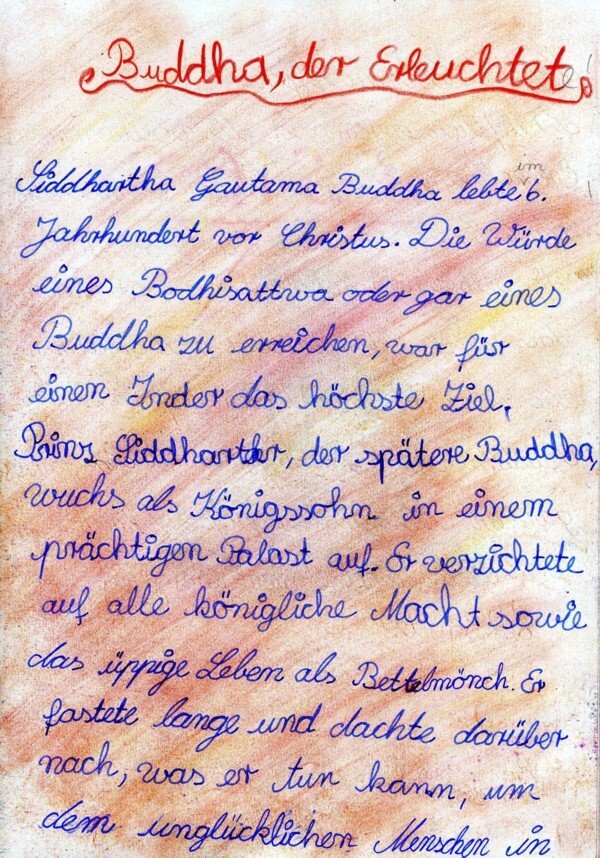 Buddha, der Erleuchtete
im
Siddhartha Gautama Buddha lebte 6.
Jahrhundert vor Christus. Die Würde
eines Bodhisattwa oder gar eines
Buddha zu erreichen, war für
einen Inder das höchste Ziel.
Prinz Siddharthar, der spätere Buddha,
wuchs als Königssohn in einem
prächtigen Palast auf. Er verzichtete
auf alle königliche Macht sowie
das üppige Leben als Bettelmönch. Er
fastete lange und dachte darüber
nach, was er tun kann, um
dem unglücklichen Menschen in